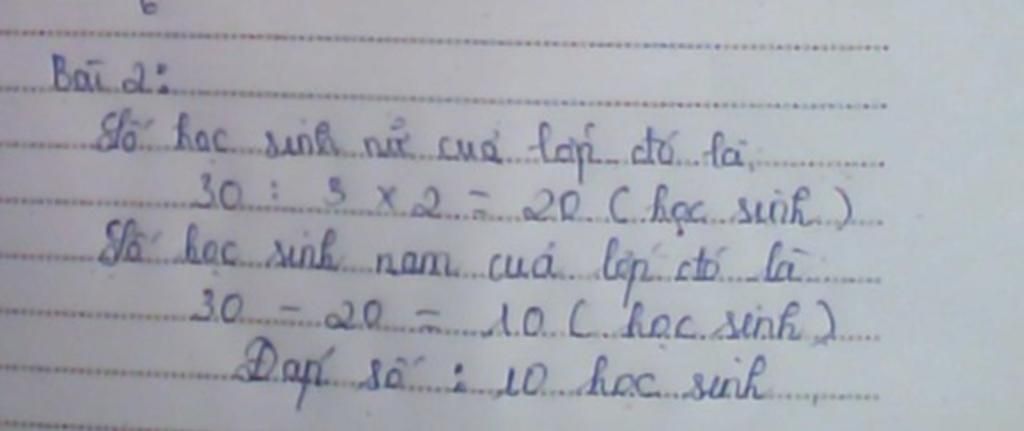 Bài 2:
Số học sinh nữ của lớp đó là
30 : 3 x 2 = 20 ( học sinh )
Số học sinh nam của lớp đó là
30 - 20 = 10 ( học sinh )
Đáp số : 10 học sinh